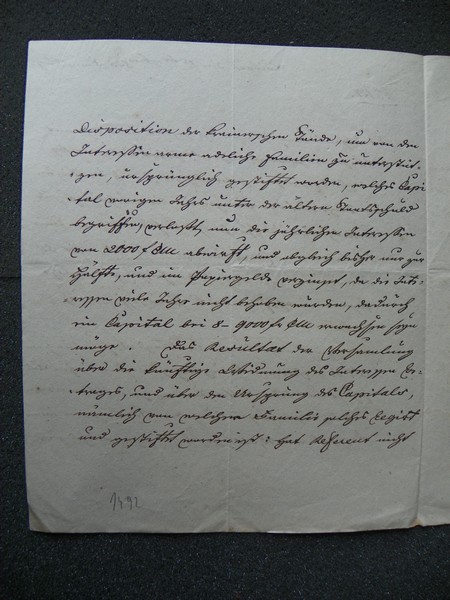 Disposition der krainerschen Stände, um von den
Interessen arme adeliche Familien zu unterstüt-
zen, ursprünglich gestiftet worden, welches Capi-
tal vorigen Jahres unter der ältern Staatsschuld
begriffen, verlost, nun die jährlichen Interessen
von 2000 f CM abwirft, und obgleich bisher nur zur
Hälfte, und im Papiergelde verzinset, da die Inte-
ressen viele Jahre nicht behoben wurden, dadurch
ein Capital bei 8-9000 f CM erwachsen seyn
möge. Das Resultat der Versamlung
über die künftige Widmung des Interessen Er-
trages, und über den Ursprung des Capitals,
nämlich von welcher Familie solches
und gestiftet worden ist? hat Referent nicht
1492